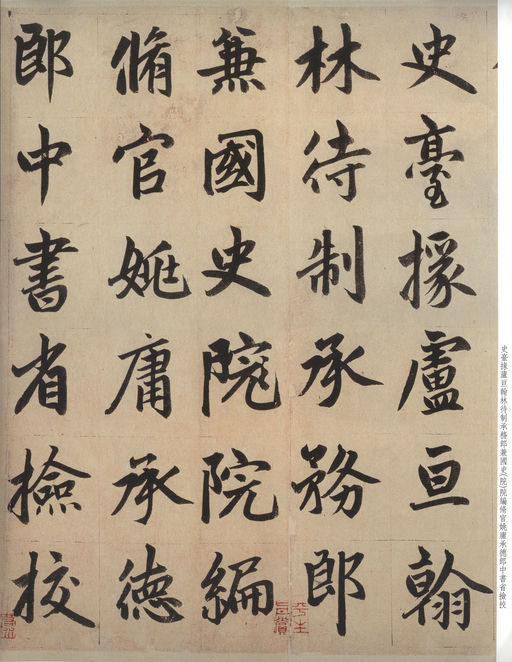 史臺掾盧亘翰
林待制承務郎
兼國史院院編
脩官姚庸承德
郎中書省撿校
史臺掾盧亘翰林待制承務郎兼國史(院)院編脩官姚庸承德郎中書省撿校